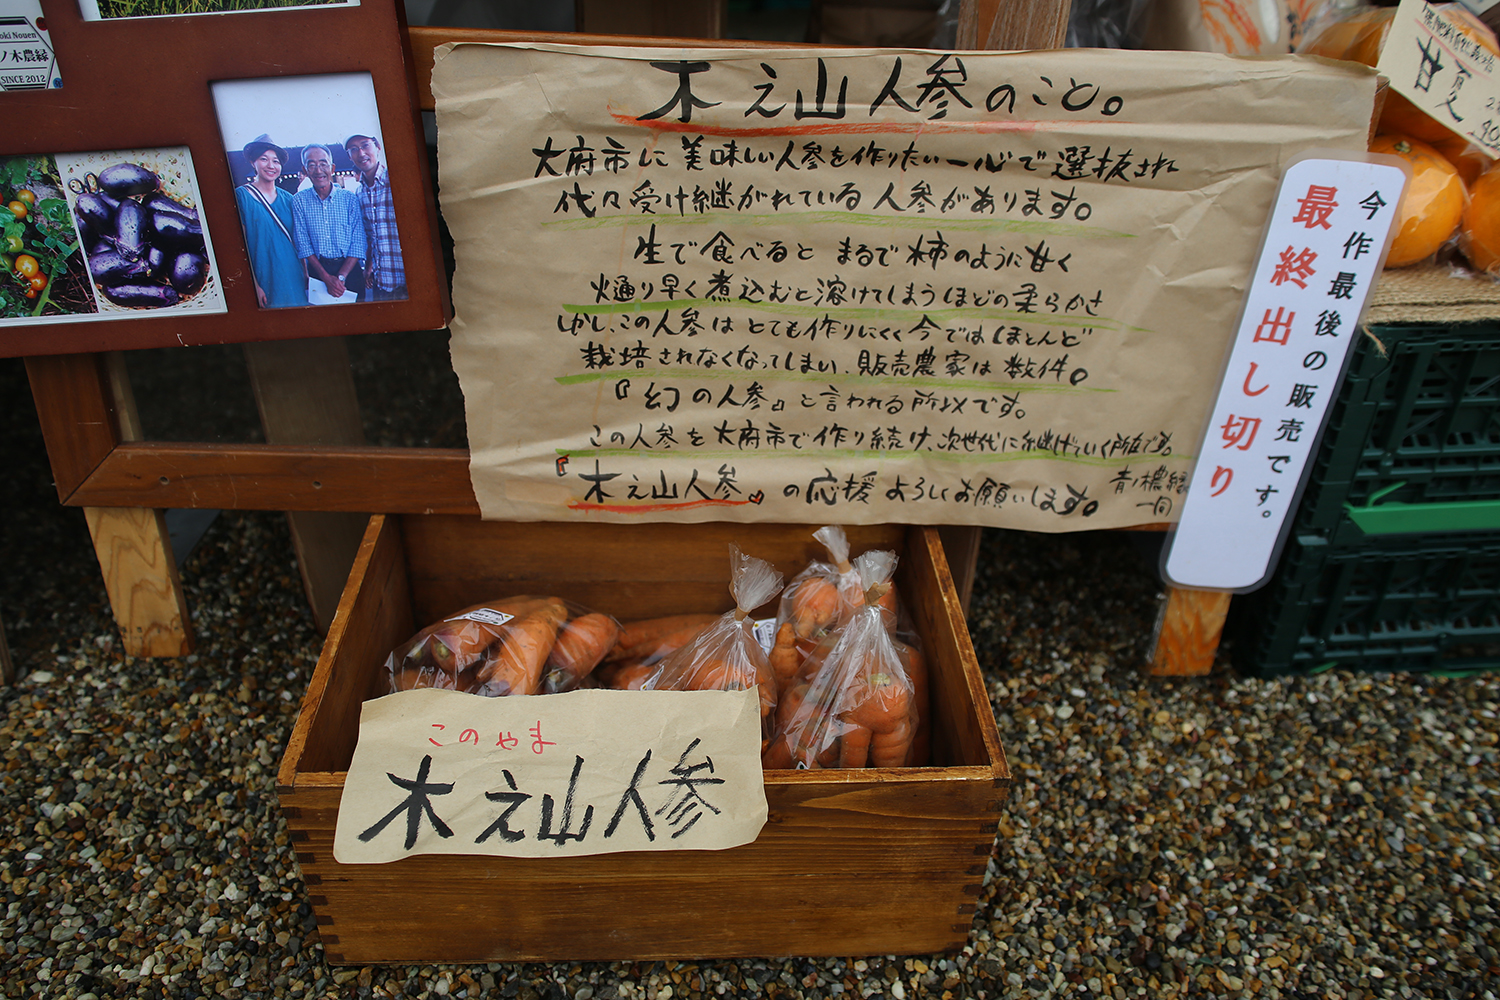 oki Nouen
ノ木農縁
SINCE 2012
木之山人参のこと。
大府市に美味しい人参を作りたい一心で選抜され
代々受け継がれている人参があります。
生で食べると まるで柿のように甘く
火通り早く煮込むと溶けてしまうほどの柔らかさ
しかし、この人参は とても作りにくく今ではほとんど
栽培されなくなってしまい、販売農家は数件。
『幻の人参』と言われる所以です。
この人参を大府市で作り続け、次世代に継げていく所存です。
『木之山人参』の応援 よろしくお願いします。
青ノ木農縁
一同
今作最後の販売です。
最終出し切り
甘夏
このやま
木之山人参